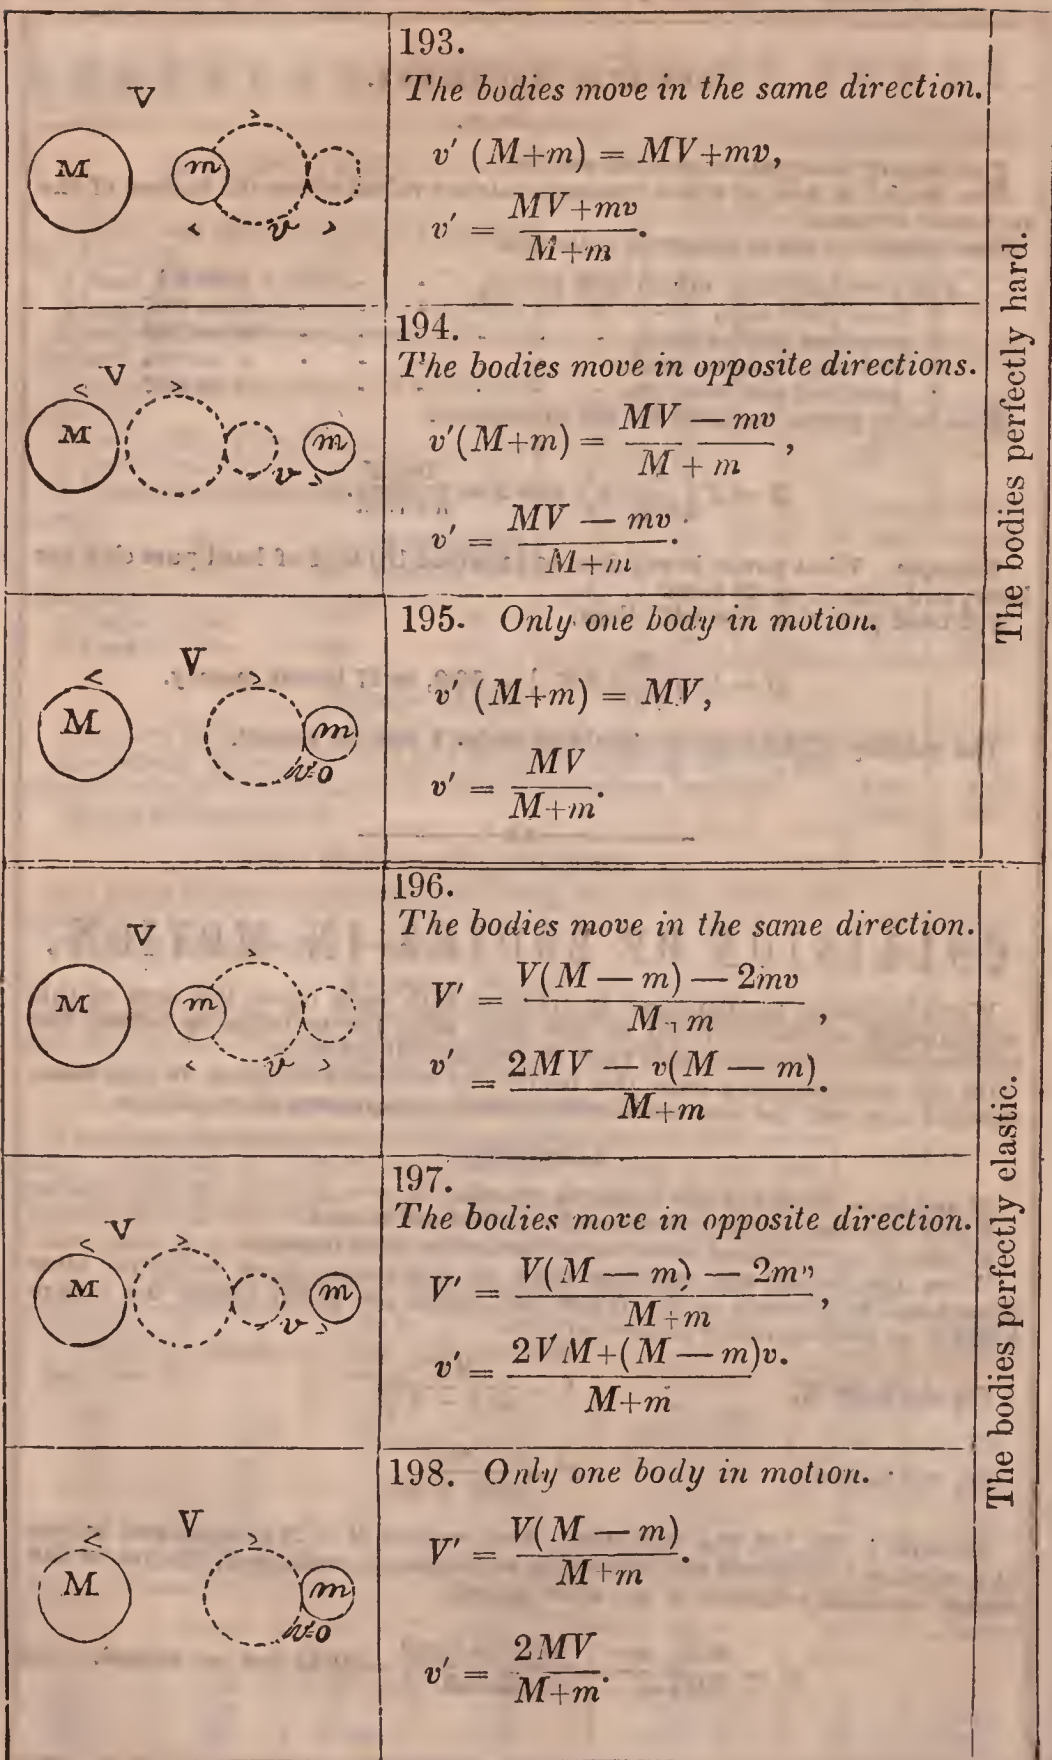 193.
The bodies move in the same direction.
V
M
m
v
v' (M+m) = MV+mv,
v' = \frac{MV+mv}{M+m}.
194.
The bodies move in opposite directions.
V
M
m
v
v'(M+m) = \frac{MV — mv}{M + m},
v' = \frac{MV — mv}{M+m}.
195. Only one body in motion.
V
M
m
v=0
v' (M+m) = MV,
v' = \frac{MV}{M+m}.
The bodies perfectly hard.
196.
The bodies move in the same direction.
V
M
m
v
V' = \frac{V(M — m) — 2mv}{M+m},
v' = \frac{2MV — v(M — m)}{M+m}.
197.
The bodies move in opposite direction.
V
M
m
v
V' = \frac{V(M — m) — 2mv}{M+m},
v' = \frac{2VM+(M — m)v.}{M+m}
198. Only one body in motion.
V
M
m
v=0
V' = \frac{V(M — m)}{M+m}.
v' = \frac{2MV}{M+m}.
The bodies perfectly elastic.